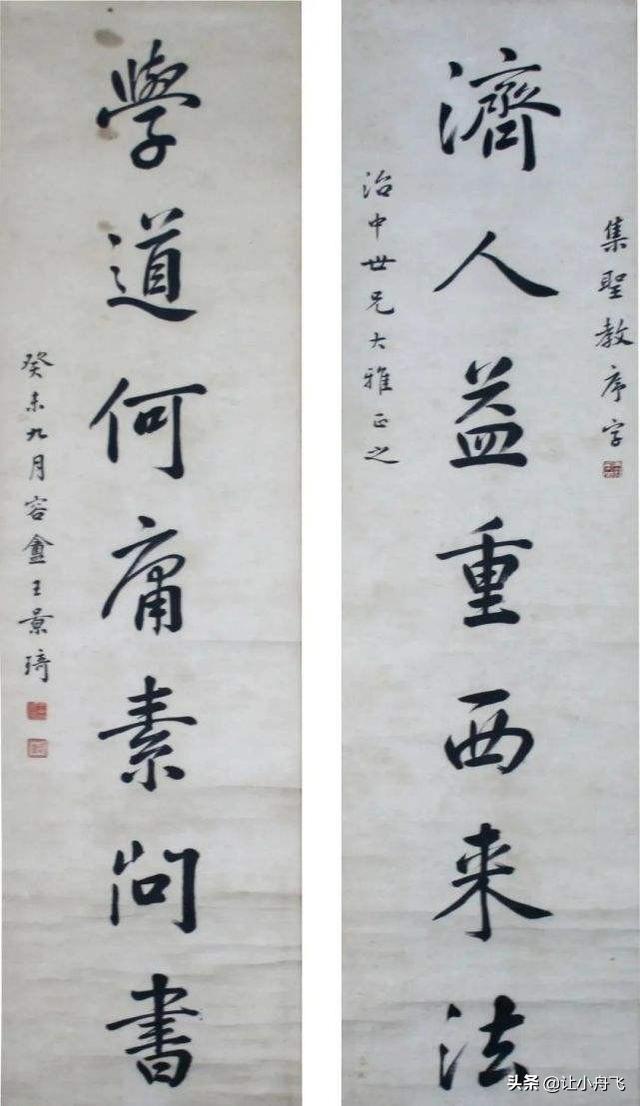 集聖教序字
濟人益重西来法
治中世兄大雅正之
學道何庸素问書
癸未九月容盦王景琦
头条 @让小舟飞